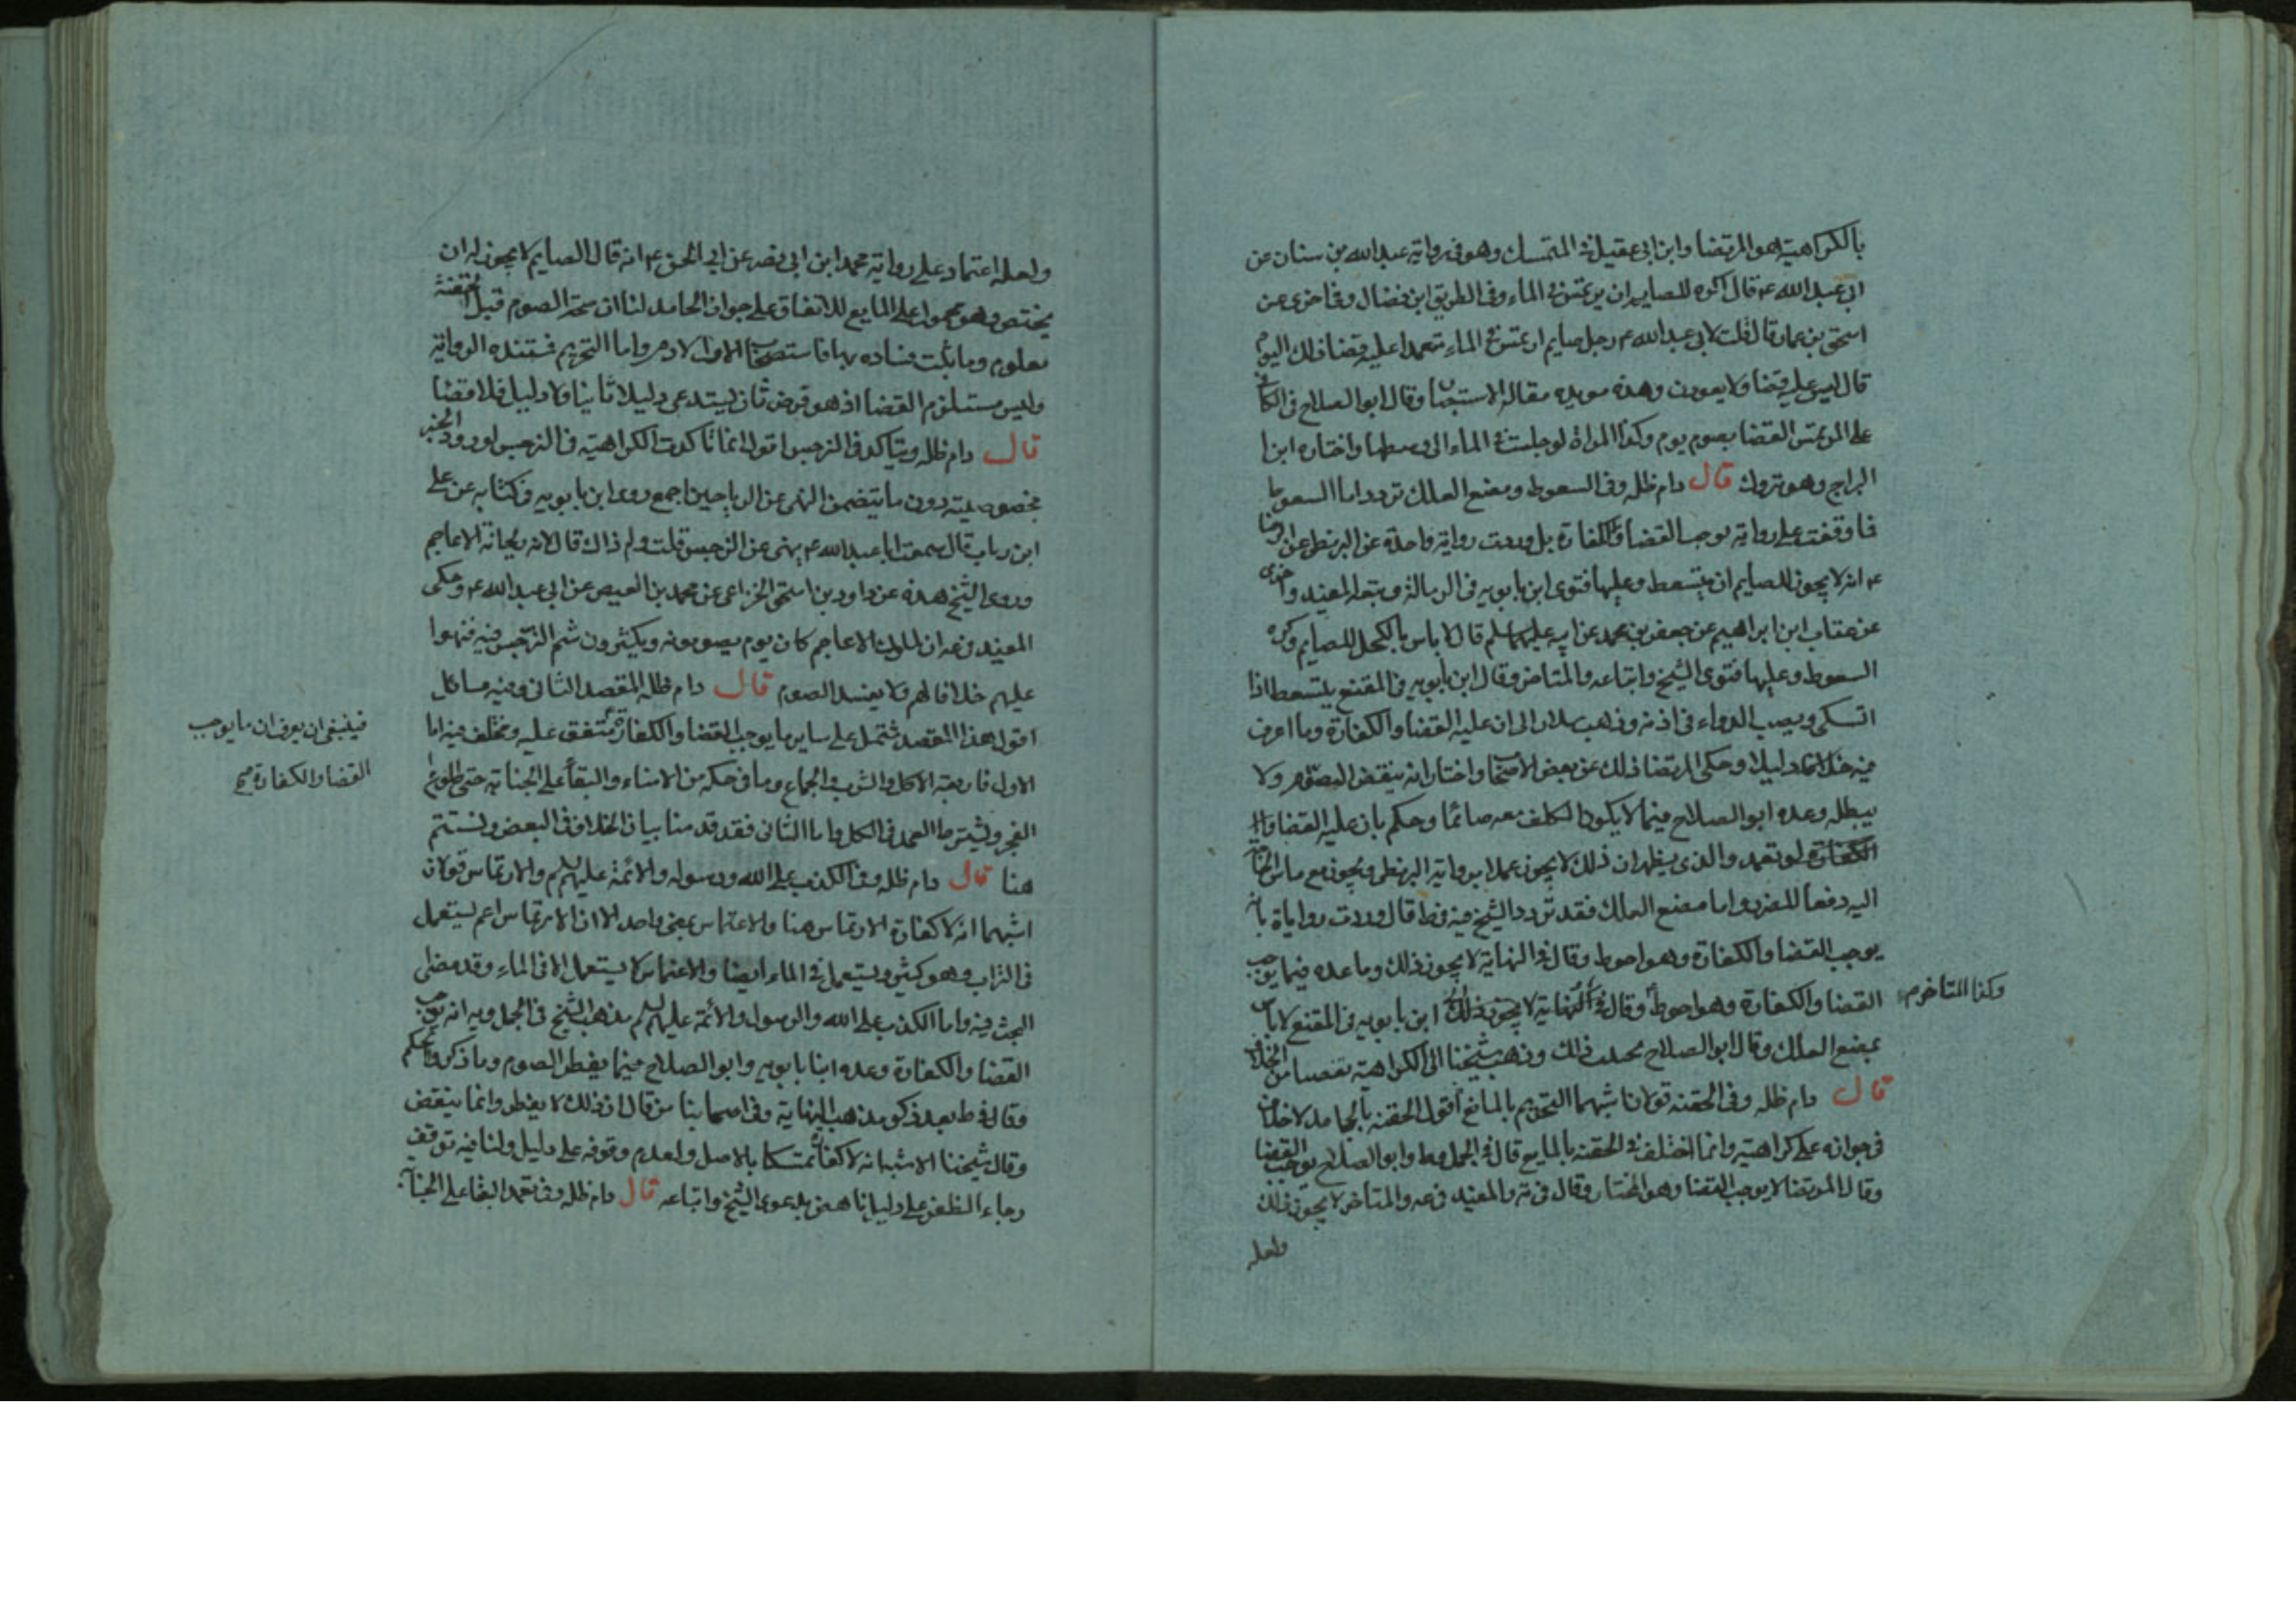 بالكراهية هو المرتضا وابن ابي عقيل في المتمسك وهو في رواية عبد الله بن سنان عن
ابي عبد الله ع قال اكره للصايم ان يرتمس في الماء وفي الطريق ابن فضال وفي اخرى عن
اسحق بن عمار قال قلت لابي عبد الله ع رجل صايم ارتمس في الماء متعمدا عليه قضا ذلك اليوم
قال ليس عليه قضا ولا يعودن وهذه مويده مقاله الاستبصار وقال ابو الصلاح في الكافي
على المرتمس القضا بصوم يوم وكذا المراة لو جلست في الماء الى وسطها واختاره ابن
البراج وهو متروك قال دام ظله وفي السعوط ومضغ العلك تردد اما السعوط
فما وقفت على رواية توجب القضا والكفارة بل وردت رواية واحدة عن البزنطي عن الرضا
ع انه لا يجوز للصايم ان يتسعط وعليها فتوى ابن بابويه في الرسالة وتبعه المفيد واخرى
عن غياث ابن ابراهيم عن جعفر بن محمد عن ابيه عليهما السلم قال لا باس بالكحل للصايم وكره
السعوط وعليها فتوى الشيخ واتباعه والمتاخر وقال ابن بابويه في المقنع يتسعط اذا
اشتكى ويصب الدواء في اذنه وذهب سلار الى ان عليه القضا والكفارة وما اعرف
فيه دليلا وحكى المرتضا ذلك عن بعض الاصحاب واختار انه ينقض الصوم ولا
يبطله وعده ابو الصلاح فيما لا يكون المكلف معه صائما وحكم بان عليه القضا و
الكفارة لو تعمد والذي يظهر ان ذلك لا يجوز عملا برواية البزنطي ويجوز مع مساس الحاجة
اليه دفعا للضرر واما مضغ العلك فقد تردد الشيخ فيه في ط قال وردت رواياة بانه
يوجب القضا والكفارة وهو احوط وقال في النهاية لا يجوز ذلك وما عده فيما يوجب
القضا والكفارة وهو احوط وقال في النهاية لا يجوز ذلك ابن بابويه في المقنع لا باس
وكذا المتاخر م
بمضغ العلك وقال ابو الصلاح ذلك وذهب شيخنا الى الكراهية تفصيا من الخلاف
قال دام ظله وفي الحقنه قولان اشبهما التحريم بالمايع اقول الحقنه بالجامد لا خلاف
في جوازه على كراهية وانما اختلف في الحقنه بالمايع قال في الجمل وط وابو الصلاح يوجب القضا
وقال المرتضا لا يوجب القضا وهو المختار وقال في يه والمفيد في عه والمتاخر لا يجوز ذلك
ولعله
ولعله اعتماد على رواية محمد ابن ابي نصر عن ابي الحسن ع انه قال الصايم لا يجوز له ان
يحتقن وهو محمول على المايع للاتفاق على جواز الجامد لنا ان صحة الصوم قبل الحقنة
معلوم وما ثبت فساده بها فاستصحاب الاول لازم واما التحريم فمستنده الرواية
وليس مستلزم القضا اذ هو فرض ثان يستدعي دليلا ثانيا ولا دليل فلا قضا
قال دام ظله ويتاكد في النرجس اقول انما تاكدت الكراهية في النرجس لورود الخبر
بخصوصيته دون ما يتضمن النهي عن الرياحين اجمع روى ابن بابويه في كتابه عن علي
ابن رباب قال سمعت ابا عبد الله ع ينهى عن النرجس قلت ولم ذاك قال لانه ريحانة الاعاجم
وروى الشيخ هذه عن داود بن اسحق الخزاعي عن محمد بن العيص عن ابي عبد الله ع وحكى
المفيد في عه ان لملوك الاعاجم كان يوم يصومونه ويكثرون شم النرجس فيه فنهوا
عليهم خلافا لهم ولا يفسد الصوم قال دام ظله المقصد الثاني وفيه مسائل
اقول هذا المقصد يشتمل على ساير ما يوجب القضا والكفارة متفق عليه ومختلف فيه اما
فينبغي ان يعرف ان ما يوجب
القضا والكفارة صح
الاول فاربعة الاكل والشرب والجماع وما في حكمه من الامناء والبقا على الجنابة حتى طلوع
الفجر ويشترط العمد في الكل واما الثاني فقد قدمنا بيان الخلاف في البعض ونستتم
هنا قال دام ظله وفي الكذب على الله ورسوله والائمة عليهم السلم والارتماس قولان
اشبههما انه لا كفارة الارتماس هنا والاغتماس بمعنى واحد الا ان الارتماس اعم يستعمل
في التراب وهو كثير ويستعمل في الماء ايضا والاغتماس لا يستعمل الا في الماء وقد مضى
البحث فيه واما الكذب على الله والرسول والائمة عليهم السلم مذهب الشيخ في الجمل ويه انه يوجب
القضا والكفارة وعده ابنا بابويه وابو الصلاح فيما يفطر الصوم وما ذكروا حكم
وقال في ط بعد ذكر مذهب النهاية وفي اصحابنا من قال ان ذلك لا يفطر وانما ينقض
وقال شيخنا الاشبه انه لا كفارة تمسكا بالاصل ولعدم وقوفه على دليل ولنا فيه توقف
رجاء الظفر على دليل ناهض بدعوى الشيخ واتباعه قال دام ظله وفي تعمد البقا على الجنابة